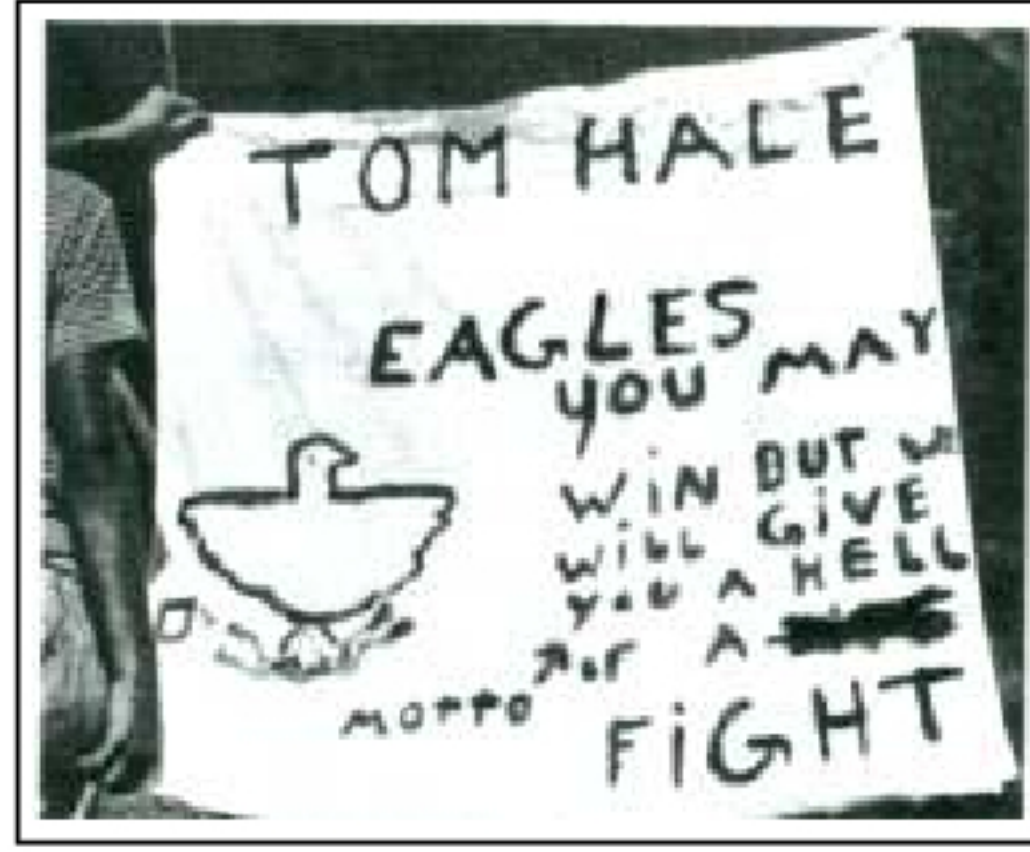 TOM HALE
EAGLES
YOU MAY
WIN BUT W
WILL GIVE
YOU A HELL
OF A
MOTTO
FIGHT